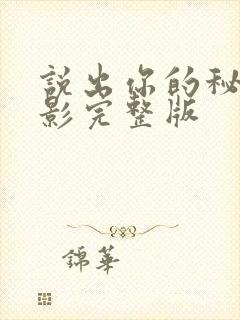 說出你的秘
影完整版
錦華